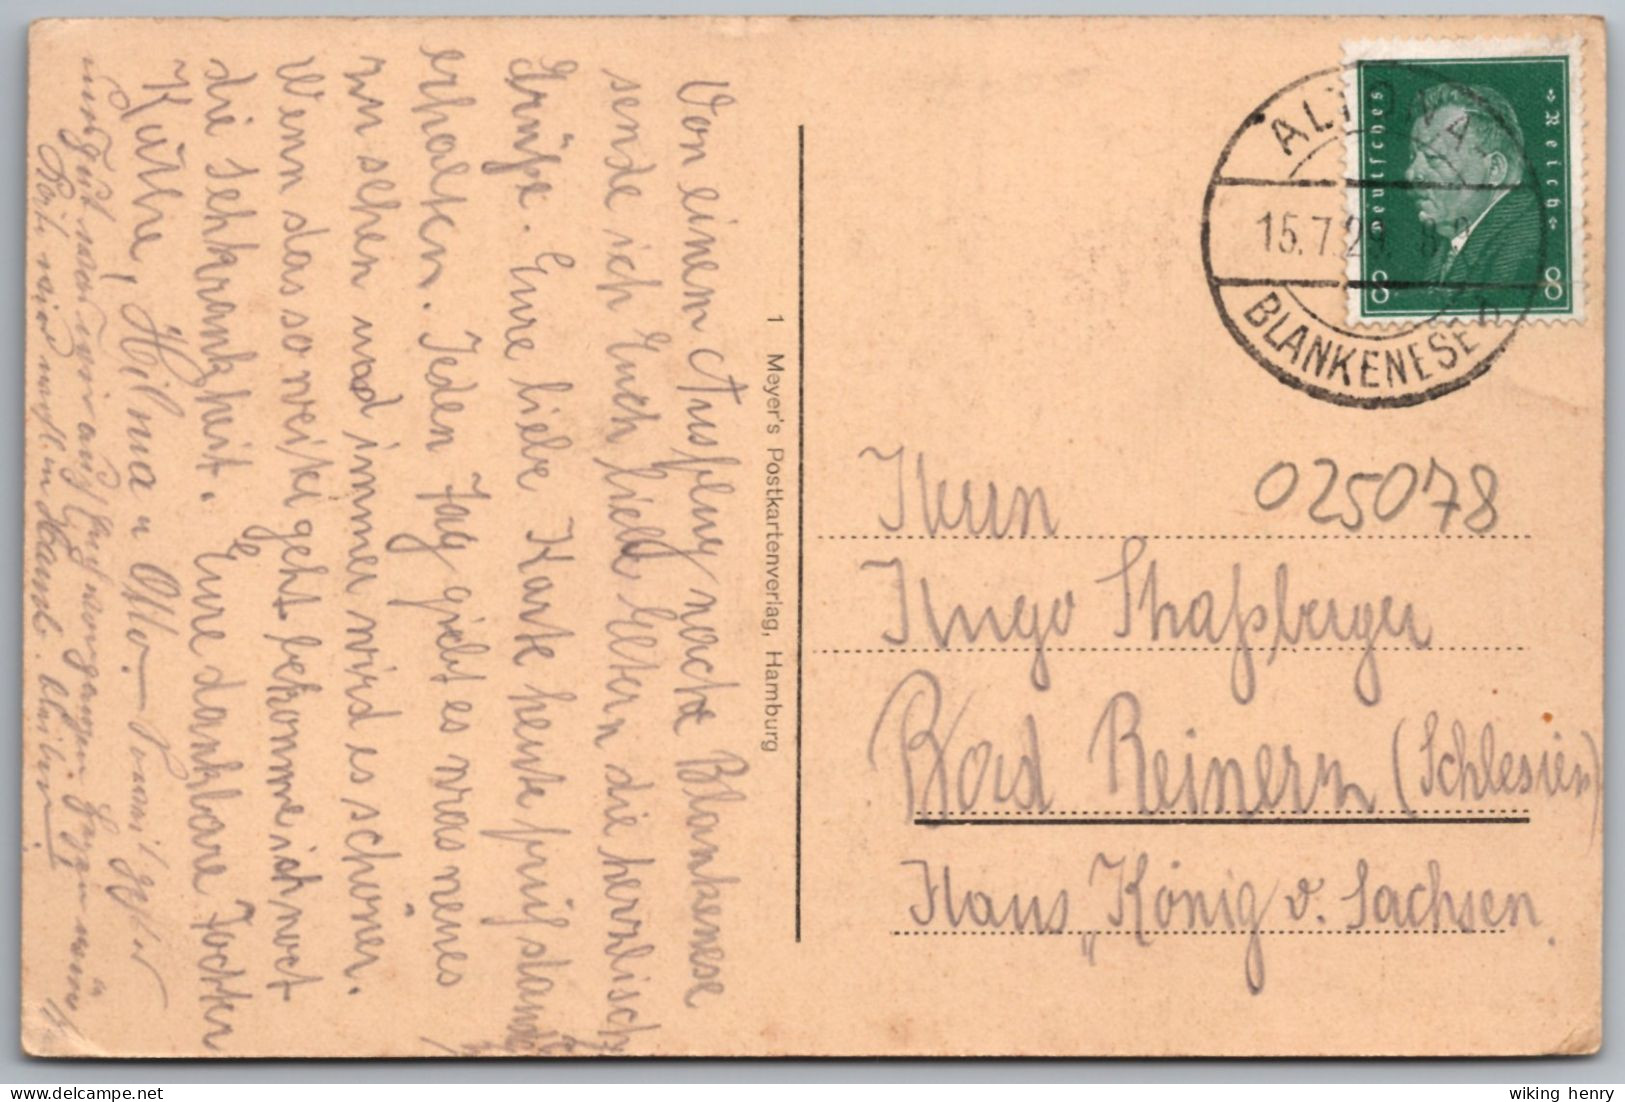 Von einem Ausflug nach Blankenese
sende ich Euch liebe Eltern die herrlisch
Grüße. Eure liebe Karte heute früh
erhalten. Jeden Tag giebt es was neues
zu sehen und immer wird es schöner.
Wenn das so weiter geht bekomme ich noch
die Sehkrankheit. Eure dankbare Tochter
Käthe, Hilma u Otto.
1 Meyer's Postkartenverlag, Hamburg
Deutsches Reich
8 8
ALTONA-
15.7.29. 8-9
BLANKENESE
025078
Herrn
Hugo Shaßberger
Bad Reinerz (Schlesien)
Haus „König v. Sachsen
wiking henry